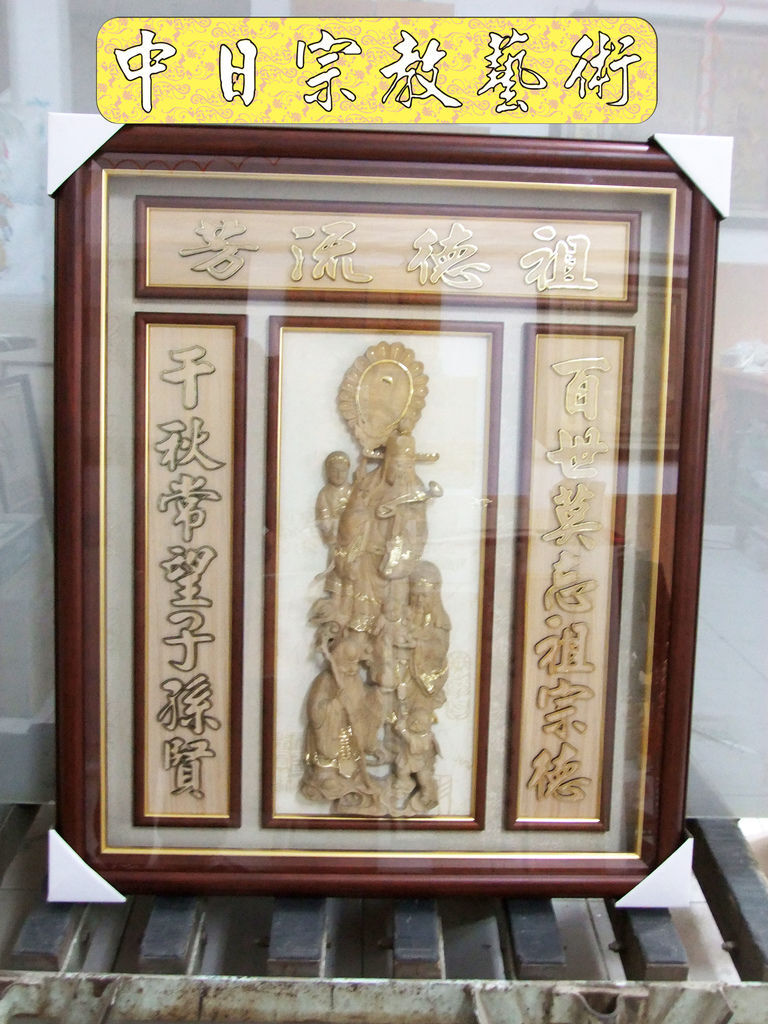 中日宗教藝術
祖德流芳
百世莫忘祖宗德
千秋常望子孫賢